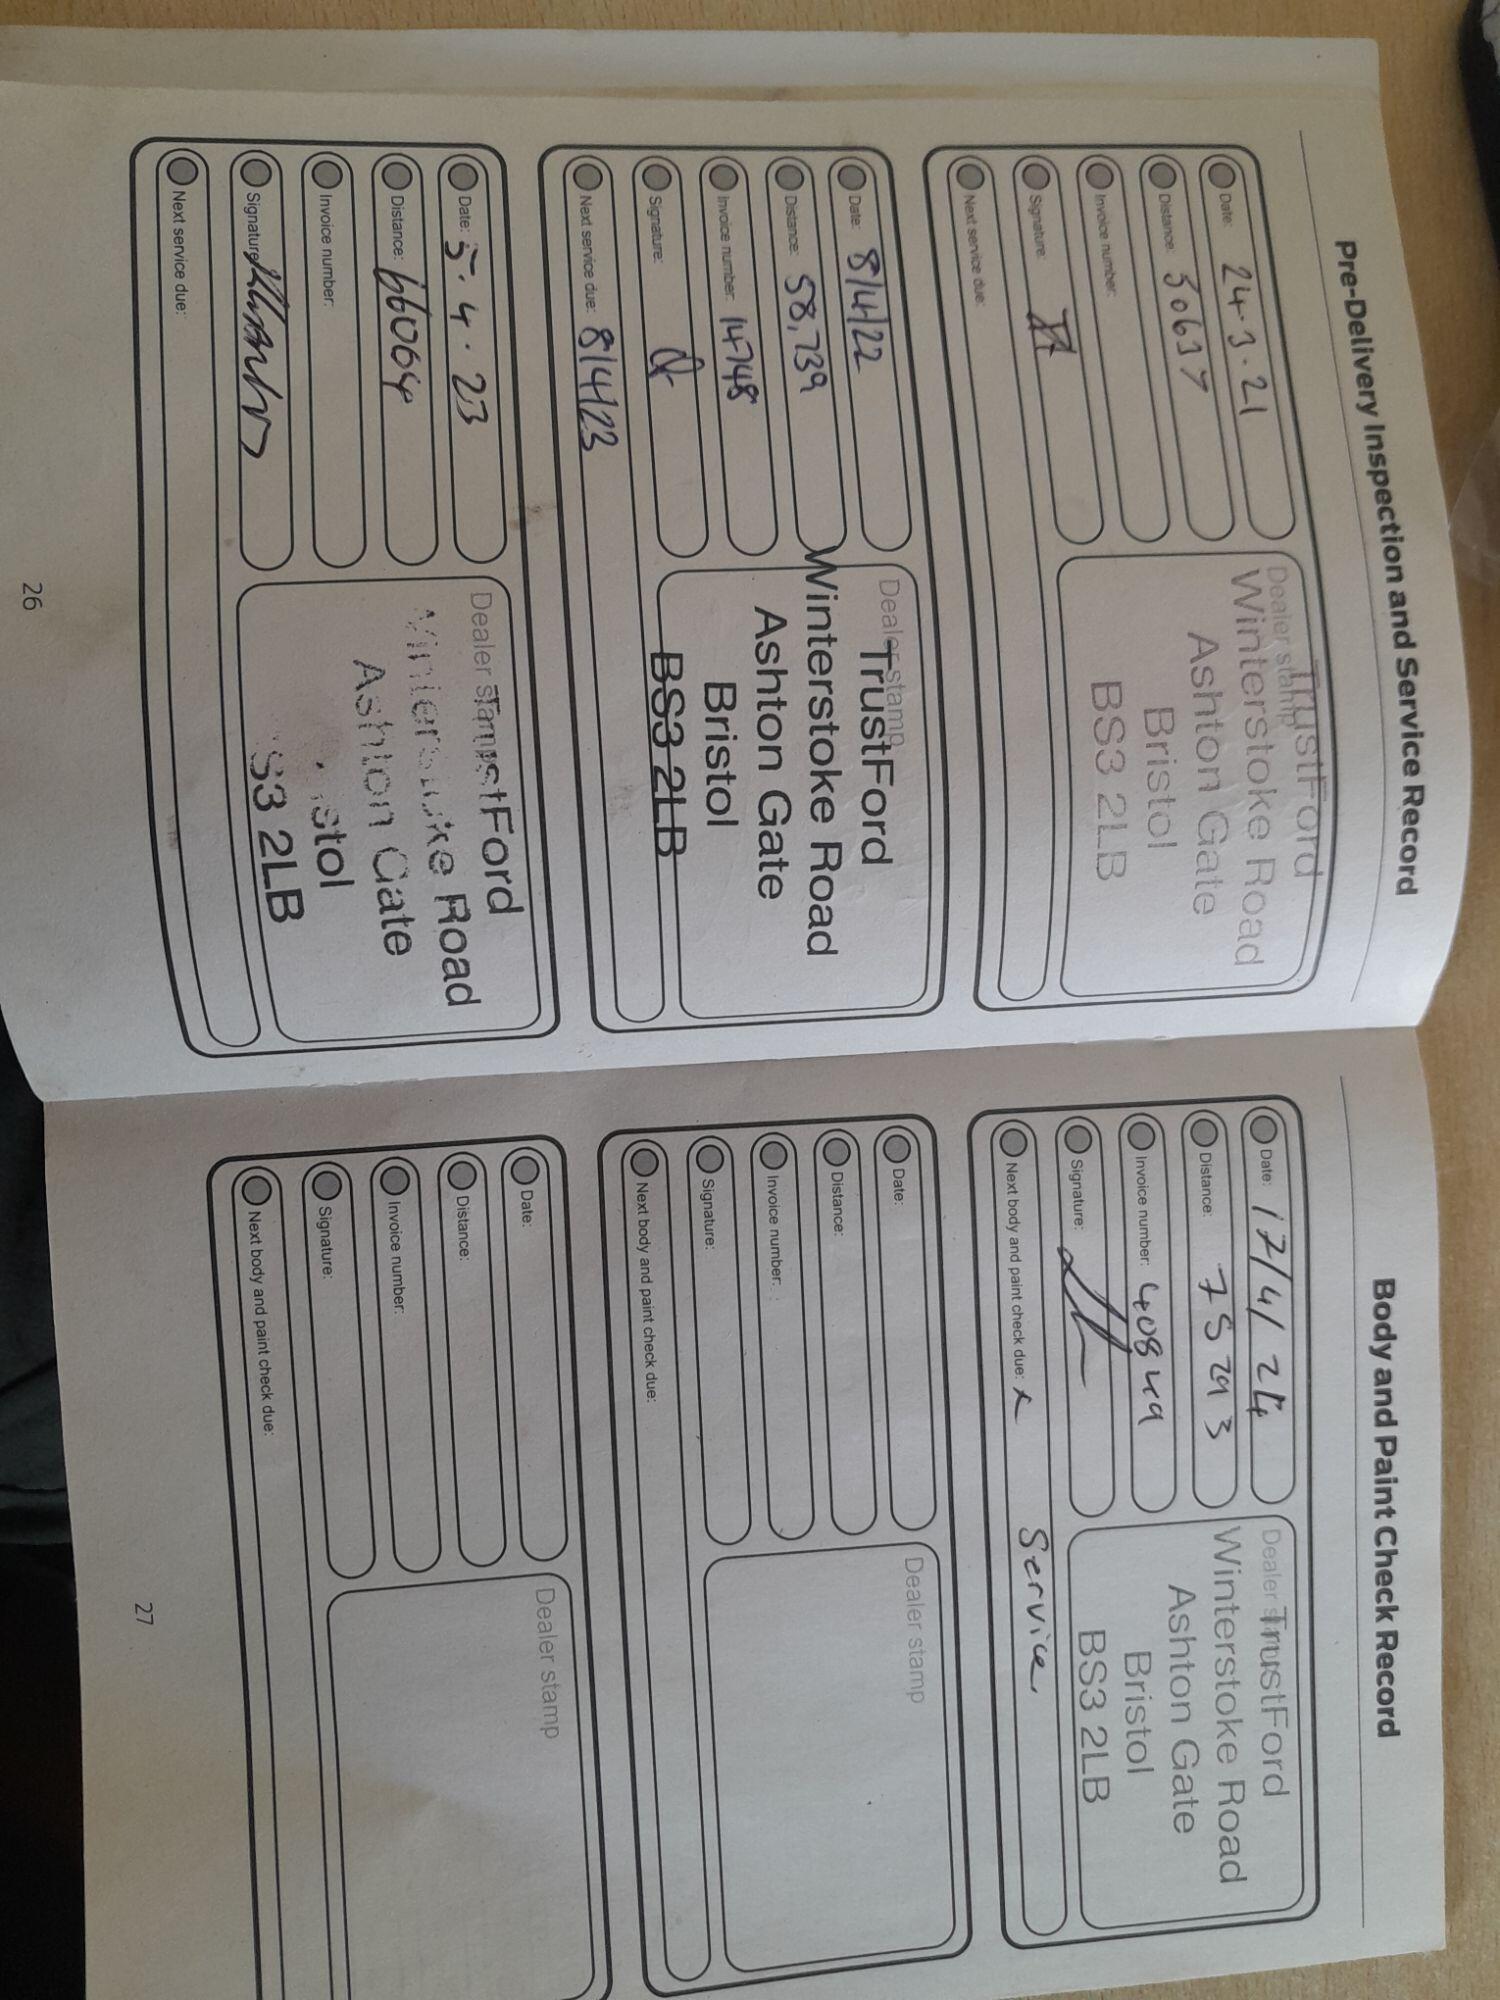 Pre-Delivery Inspection and Service Record
Date: 24.3.21
Distance: 30617
Invoice number:
Signature:
Next service due:
Dealer stamp
TrustFord
Winterstoke Road
Ashton Gate
Bristol
BS3 2LB
Date: 8/4/22
Distance: 58,739
Invoice number: 14748
Signature:
Next service due: 8/4/23
Dealer stamp
TrustFord
Winterstoke Road
Ashton Gate
Bristol
BS3 2LB
Date: 5.4.23
Distance: 66064
Invoice number:
Signature:
Next service due:
Dealer stamp
stFord
Winterstoke Road
Ashton Gate
stol
S3 2LB
26
Body and Paint Check Record
Date: 17/4/24
Distance: 75293
Invoice number:
Signature:
Next body and paint check due: x Service
Dealer
TrustFord
Winterstoke Road
Ashton Gate
Bristol
BS3 2LB
Date:
Distance:
Invoice number:
Signature:
Next body and paint check due:
Dealer stamp
Date:
Distance:
Invoice number:
Signature:
Next body and paint check due:
Dealer stamp
27